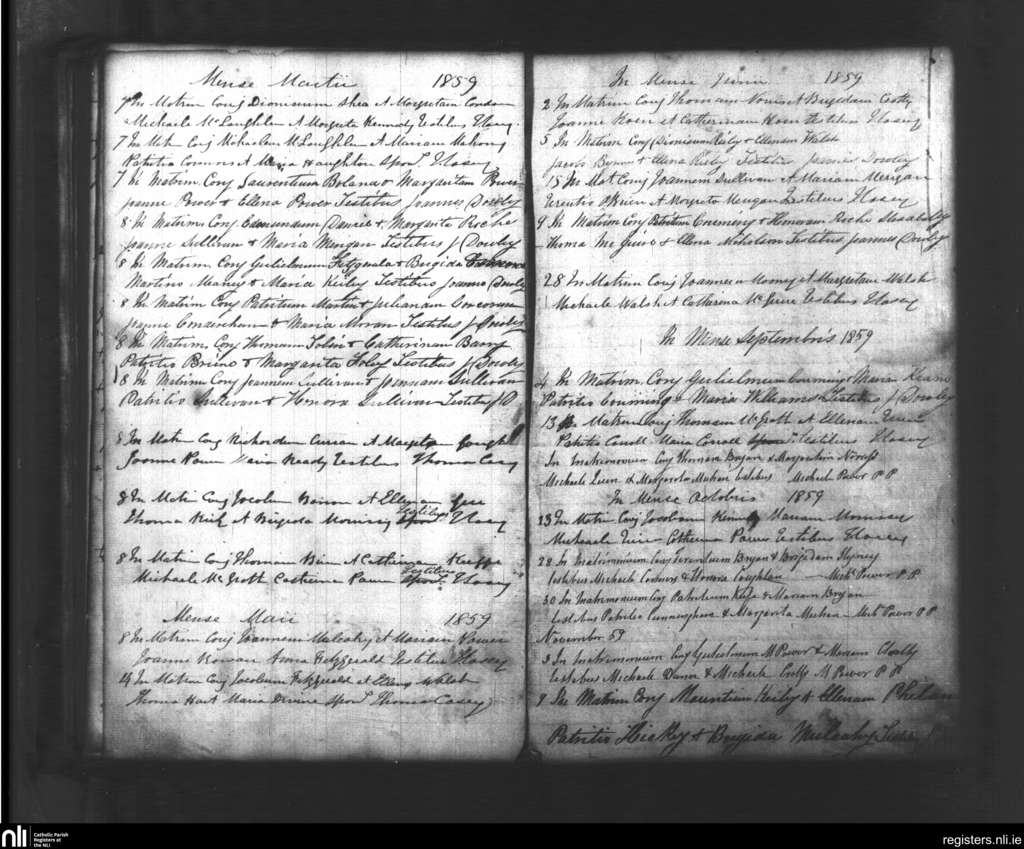 Mense Martii 1859
7 In Matrim Conj Dionisium Shea et Margretam Condon
Michaele McLoughlin et Margreta Kennedy Testibus TCasey
7 In Mat Conj Michaelum McLoughlin et Mariam Mahony
Patritio Connors et Maria Haughton Spon TCasey
7 In Matrim Conj Laurentium Boland & Margaritam Power
Joanne Power & Ellena Power Testibus Joannes Dowley
8 In Matrim Conj Edmundum Davis & Margarita Roche
Joanne Sullivan & Maria Mengan Testibus J Dowley
8 In Matrim Conj Gulielmum Fitzgerald & Brigida
Martino Meaney & Maria Kiely Testibus Joannes Dowley
8 In Matrim Conj Patritum Martin & Julianam Corcoran
Joanne & Maria Moran Testibus J Dowley
8 In Matrim Conj Thomam Tobin & Catherinam Barry
Patritio Brien & Margarita Foley Testibus J Dowley
8 In Matrim Conj Joannem Sullivan & Joannam Sullivan
Patritio Sullivan & Honora Sullivan Testibus J D
8 In Matrim Conj Richardum Curran et Margreta
Joanne Power Maria Ready Testibus Thoma Casey
8 In Matri Conj Jacobum et Ellenam
Testibus
Thoma Kirk et Brigida Morrissy TCasey
8 In Matrim Conj Thomam Brien et Catherinam Keeffe
Testibus
Michaele McGrath Catherina Power TCasey
Mense Maii 1859
8 In Matrim Conj Joannem Mulcahy et Mariam Power
Joanne Kowan Anna Fitzgerald Testibus TCasey
14 In Matrim Conj Jacobum Fitzgerald et Ellena Walsh
Thoma Hart Maria Divine Spon Thoma Casey
In Mense Junii 1859
2 In Matrim Conj Thomam et Brigidam
Joanne Koen et Catherinam Koen Testibus TCasey
5 In Matrim Conj Dionisium Kiely & Ellenam Walsh
Jacob Byrne & Ellena Kiely Testibus Joannes Dowley
15 In Mat Conj Joannem Sullivan et Mariam Merigan
OBrien et Margreta Mengan Testibus TCasey
9 In Matrim Conj Patritum & Honoram Roche
Thoma McGuire & Ellena Nicholson Testibus Joannes Dowley
28 In Matrim Conj Joannem Mooney et Margretam Walsh
Michaele Walsh et Catherina McGuire Testibus TCasey
In Mense Septembris 1859
4 In Matrim Conj Gulielmum & Maria Keane
Patritio & Maria Williams Testibus J Dowley
13 In Matrim Conj Thomam McGrath et Ellenam
Patritio Carroll Maria Carroll Testibus TCasey
In matrimonium Conj Thomam Bryan & Margaritam
Michaele & Margarita Meehan testibus Michael Power P P
In Mense Octobris 1859
23 In Matrim Conj Jacobum Kennedy Mariam Morrissey
Michaele Catherina Power Testibus TCasey
28 In Matrimonium Conj Terentium Bryan & Brigidam
testibus Michaele Connors & Honora Coughlan Michl Power P P
30 In matrimonium Conj Patritium Keefe & Mariam Bryan
testibus Patritio Cunningham & Margarita Meehan Michl Power P P
November 59
3 In matrimonium Conj Gulielmum Power & Mariam
testibus Michaele & Michaele M Power P P
9 In Matrim Conj Mauritium Kiely & Ellenam Phelan
Patritio Hickey & Brigida Mulcahy
nli Catholic Parish
Registers at
the NLI
registers.nli.ie